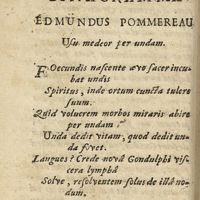 EDMUNDUS POMMEREAU
Usu medeor per undam.
FOecundis nascente ævo sacer incu-
bat undis
Spiritus, inde ortum cuncta tulere
suum.
Quid volucrem morbos mitaris abire
per undam?
Unda dedit vitam, quod dedit un-
da fovet.
Langues? Crede novâ Gondulphi vis-
cera lymphâ
Solve, resolventem solus de illâ no-
dum.